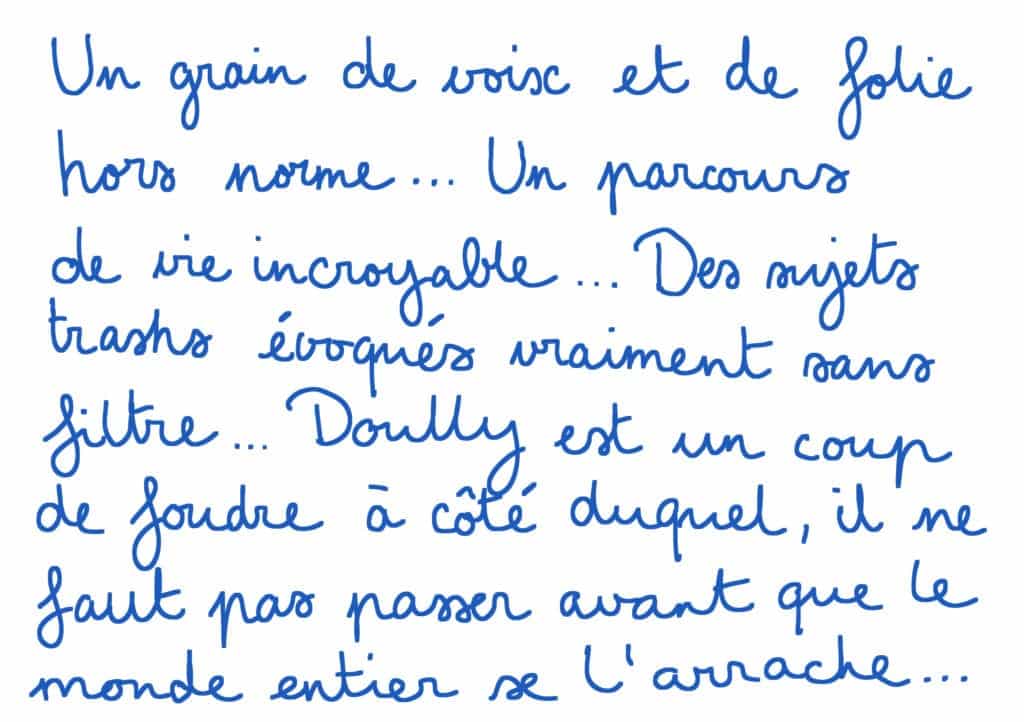 Un grain de voix et de folie
hors norme... Un parcours
de vie incroyable... Des sujets
trashs évoqués vraiment sans
filtre... Doully est un coup
de foudre à côté duquel, il ne
faut pas passer avant que le
monde entier se l'arrache...